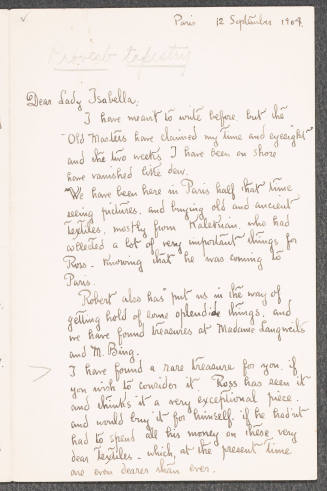 Paris 12 September 1908.
Proverb tapestry
Dear Lady Isabella,
I have meant to write before, but the
"Old Masters have claimed my time and eyesight"
and the two weeks I have been on shore
have vanished like dew.
We have been here in Paris half that time
seeing pictures, and buying old and ancient
textiles, mostly from Kalekian, who had
collected a lot of very important things for
Ross - knowing that he was coming to
Paris.
Robert also has put us in the way of
getting hold of some splendid things, and
we have found treasures at Madame Langweils
and M. Bing.
I have found a rare treasure for you, if
you wish to consider it. Ross has seen it
and thinks it a very exceptional piece.
and would buy it for himself if he hadn't
had to spend all his money on these very
dear textiles - which, at the present time
are even dearer than ever.